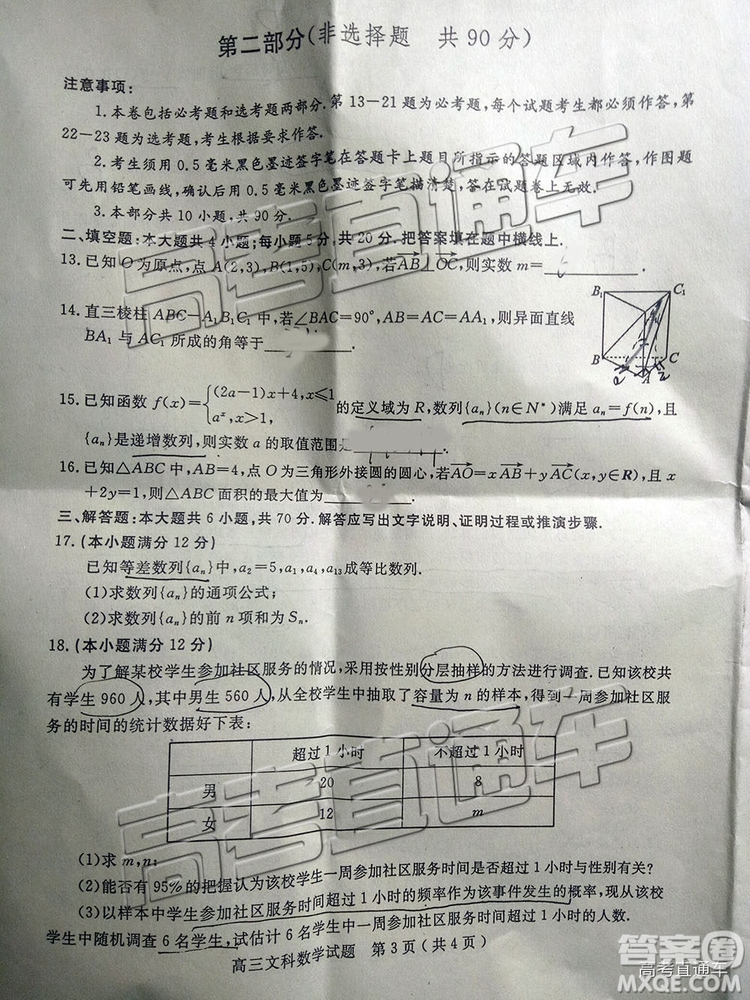 第二部分(非选择题　共90分)
注意事项:
1.本卷包括必考题和选考题两部分.第13-21题为必考题,每个试题考生都必须作答,第
22-23题为选考题,考生根据要求作答.
2.考生须用0.5毫米黑色墨迹签字笔在答题卡上题目所指示的答题区域内作答,作图题
可先用铅笔画线,确认后用0.5毫米黑色墨迹签字笔描清楚,在试题卷上无效.
3.本部分共10小题,共90分.
二、填空题:本大题共4小题;每小题5分,共20分.把答案填在题中横线上.
13.已知O为原点,点A(2,3),B(1,5),C(m,3),若AB⊥OC,则实数m=
14.直三棱柱ABC-A₁B₁C₁中,若∠BAC=90°,AB=AC=AA₁,则异面直线
BA₁与AC₁所成的角等于
B₁
C₁
B
C
A
15.已知函数f(x)={(2a-1)x+4,x≤1
aˣ,x>1,
的定义域为R,数列{aₙ}(n∈N*)满足aₙ=f(n),且
{aₙ}是递增数列,则实数a的取值范围是
16.已知△ABC中,AB=4,点O为三角形外接圆的圆心,若AO=xAB+yAC(x,y∈R),且x
+2y=1,则△ABC面积的最大值为
三、解答题:本大题共6小题,共70分.解答应写出文字说明、证明过程或推演步骤.
17.(本小题满分12分)
已知等差数列{aₙ}中,a₂=5,a₁,a₄,a₁₃成等比数列.
(1)求数列{aₙ}的通项公式;
(2)求数列{aₙ}的前n项和为Sₙ.
18.(本小题满分12分)
为了解某校学生参加社区服务的情况,采用按性别分层抽样的方法进行调查.已知该校共
有学生960人,其中男生560人,从全校学生中抽取了容量为n的样本,得到一周参加社区服
务的时间的统计数据好下表:
超过1小时 不超过1小时
男 20 8
女 12 m
(1)求m,n;
(2)能否有95%的把握认为该校学生一周参加社区服务时间是否超过1小时与性别有关?
(3)以样本中学生参加社区服务时间超过1小时的频率作为该事件发生的概率,现从该校
学生中随机调查6名学生,试估计6名学生中一周参加社区服务时间超过1小时的人数.
高三文科数学试题　第3页(共4页)
高考直通车
高考直通车
高考直通车
答案圈
高考直通车
MXQE.COM